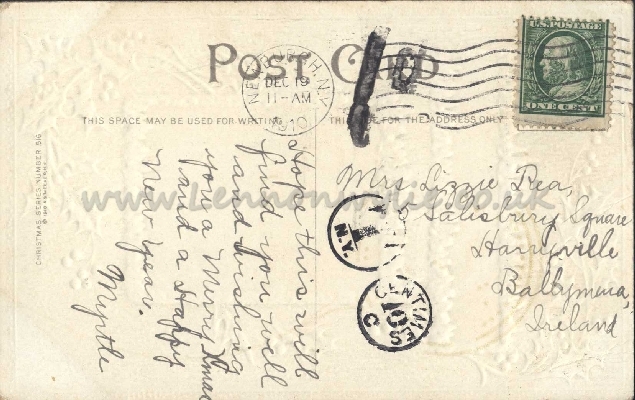 POST CARD
NEWBURGH, N.Y.
DEC 19
11-AM
1910
U.S. POSTAGE
ONE CENT
THIS SPACE MAY BE USED FOR WRITING
THIS SIDE FOR THE ADDRESS ONLY
CHRISTMAS SERIES NUMBER 516
Hope this will
find you well
and wishing
you a Merry Xmas
and a Happy
New Year.
Myrtle
Mrs Lizzie Rea,
Salisbury Square
Harryville
Ballymena,
Ireland
N.Y.
T
CENTIMES
10
C